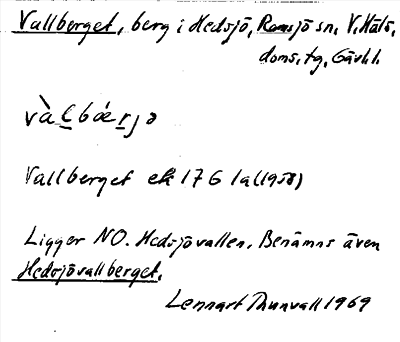 Vallberget, berg i Hedsjö, Ramsjö sn, V. Häls.
doms. tg, Gävl. l.
vàḻbǽṟjə
Vallberget ek 17G 1a (1958)
Ligger NO. Hedsjövallen. Benämns även
Hedsjövallberget.
Lennart Thunvall 1969